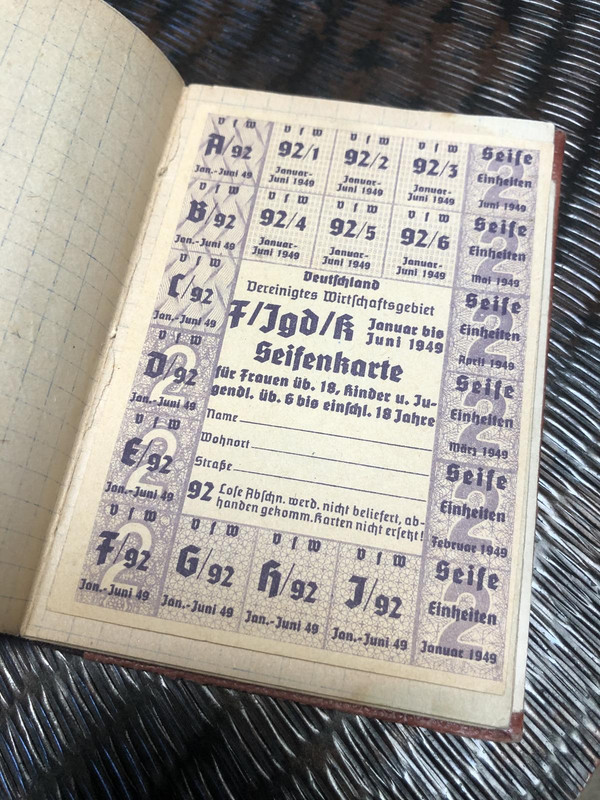 V f W
A/92
Jan.-Juni 49
V f W
92/1
Januar-
Juni 1949
V f W
92/2
Januar-
Juni 1949
V f W
92/3
Januar-
Juni 1949
Seife
2
Einheiten
Juni 1949
V f W
B/92
Jan.-Juni 49
V f W
92/4
Januar-
Juni 1949
V f W
92/5
Januar-
Juni 1949
V f W
92/6
Januar-
Juni 1949
Seife
2
Einheiten
Mai 1949
V f W
C/92
Jan.-Juni 49
Deutschland
Vereinigtes Wirtschaftsgebiet
F/Jgd/K Januar bis
Juni 1949
Seifenkarte
für Frauen üb. 18, Kinder u. Ju-
gendl. üb. 6 bis einschl. 18 Jahre
Name
Wohnort
Straße
92 Lose Abschn. werd. nicht beliefert, ab-
handen gekomm. Karten nicht ersetzt!
Seife
2
Einheiten
April 1949
V f W
D/92
2
Jan.-Juni 49
Seife
2
Einheiten
März 1949
V f W
E/92
2
Jan.-Juni 49
Seife
2
Einheiten
Februar 1949
V f W
F/92
2
Jan.-Juni 49
V f W
G/92
Jan.-Juni 49
V f W
H/92
Jan.-Juni 49
V f W
J/92
Jan.-Juni 49
Seife
2
Einheiten
Januar 1949